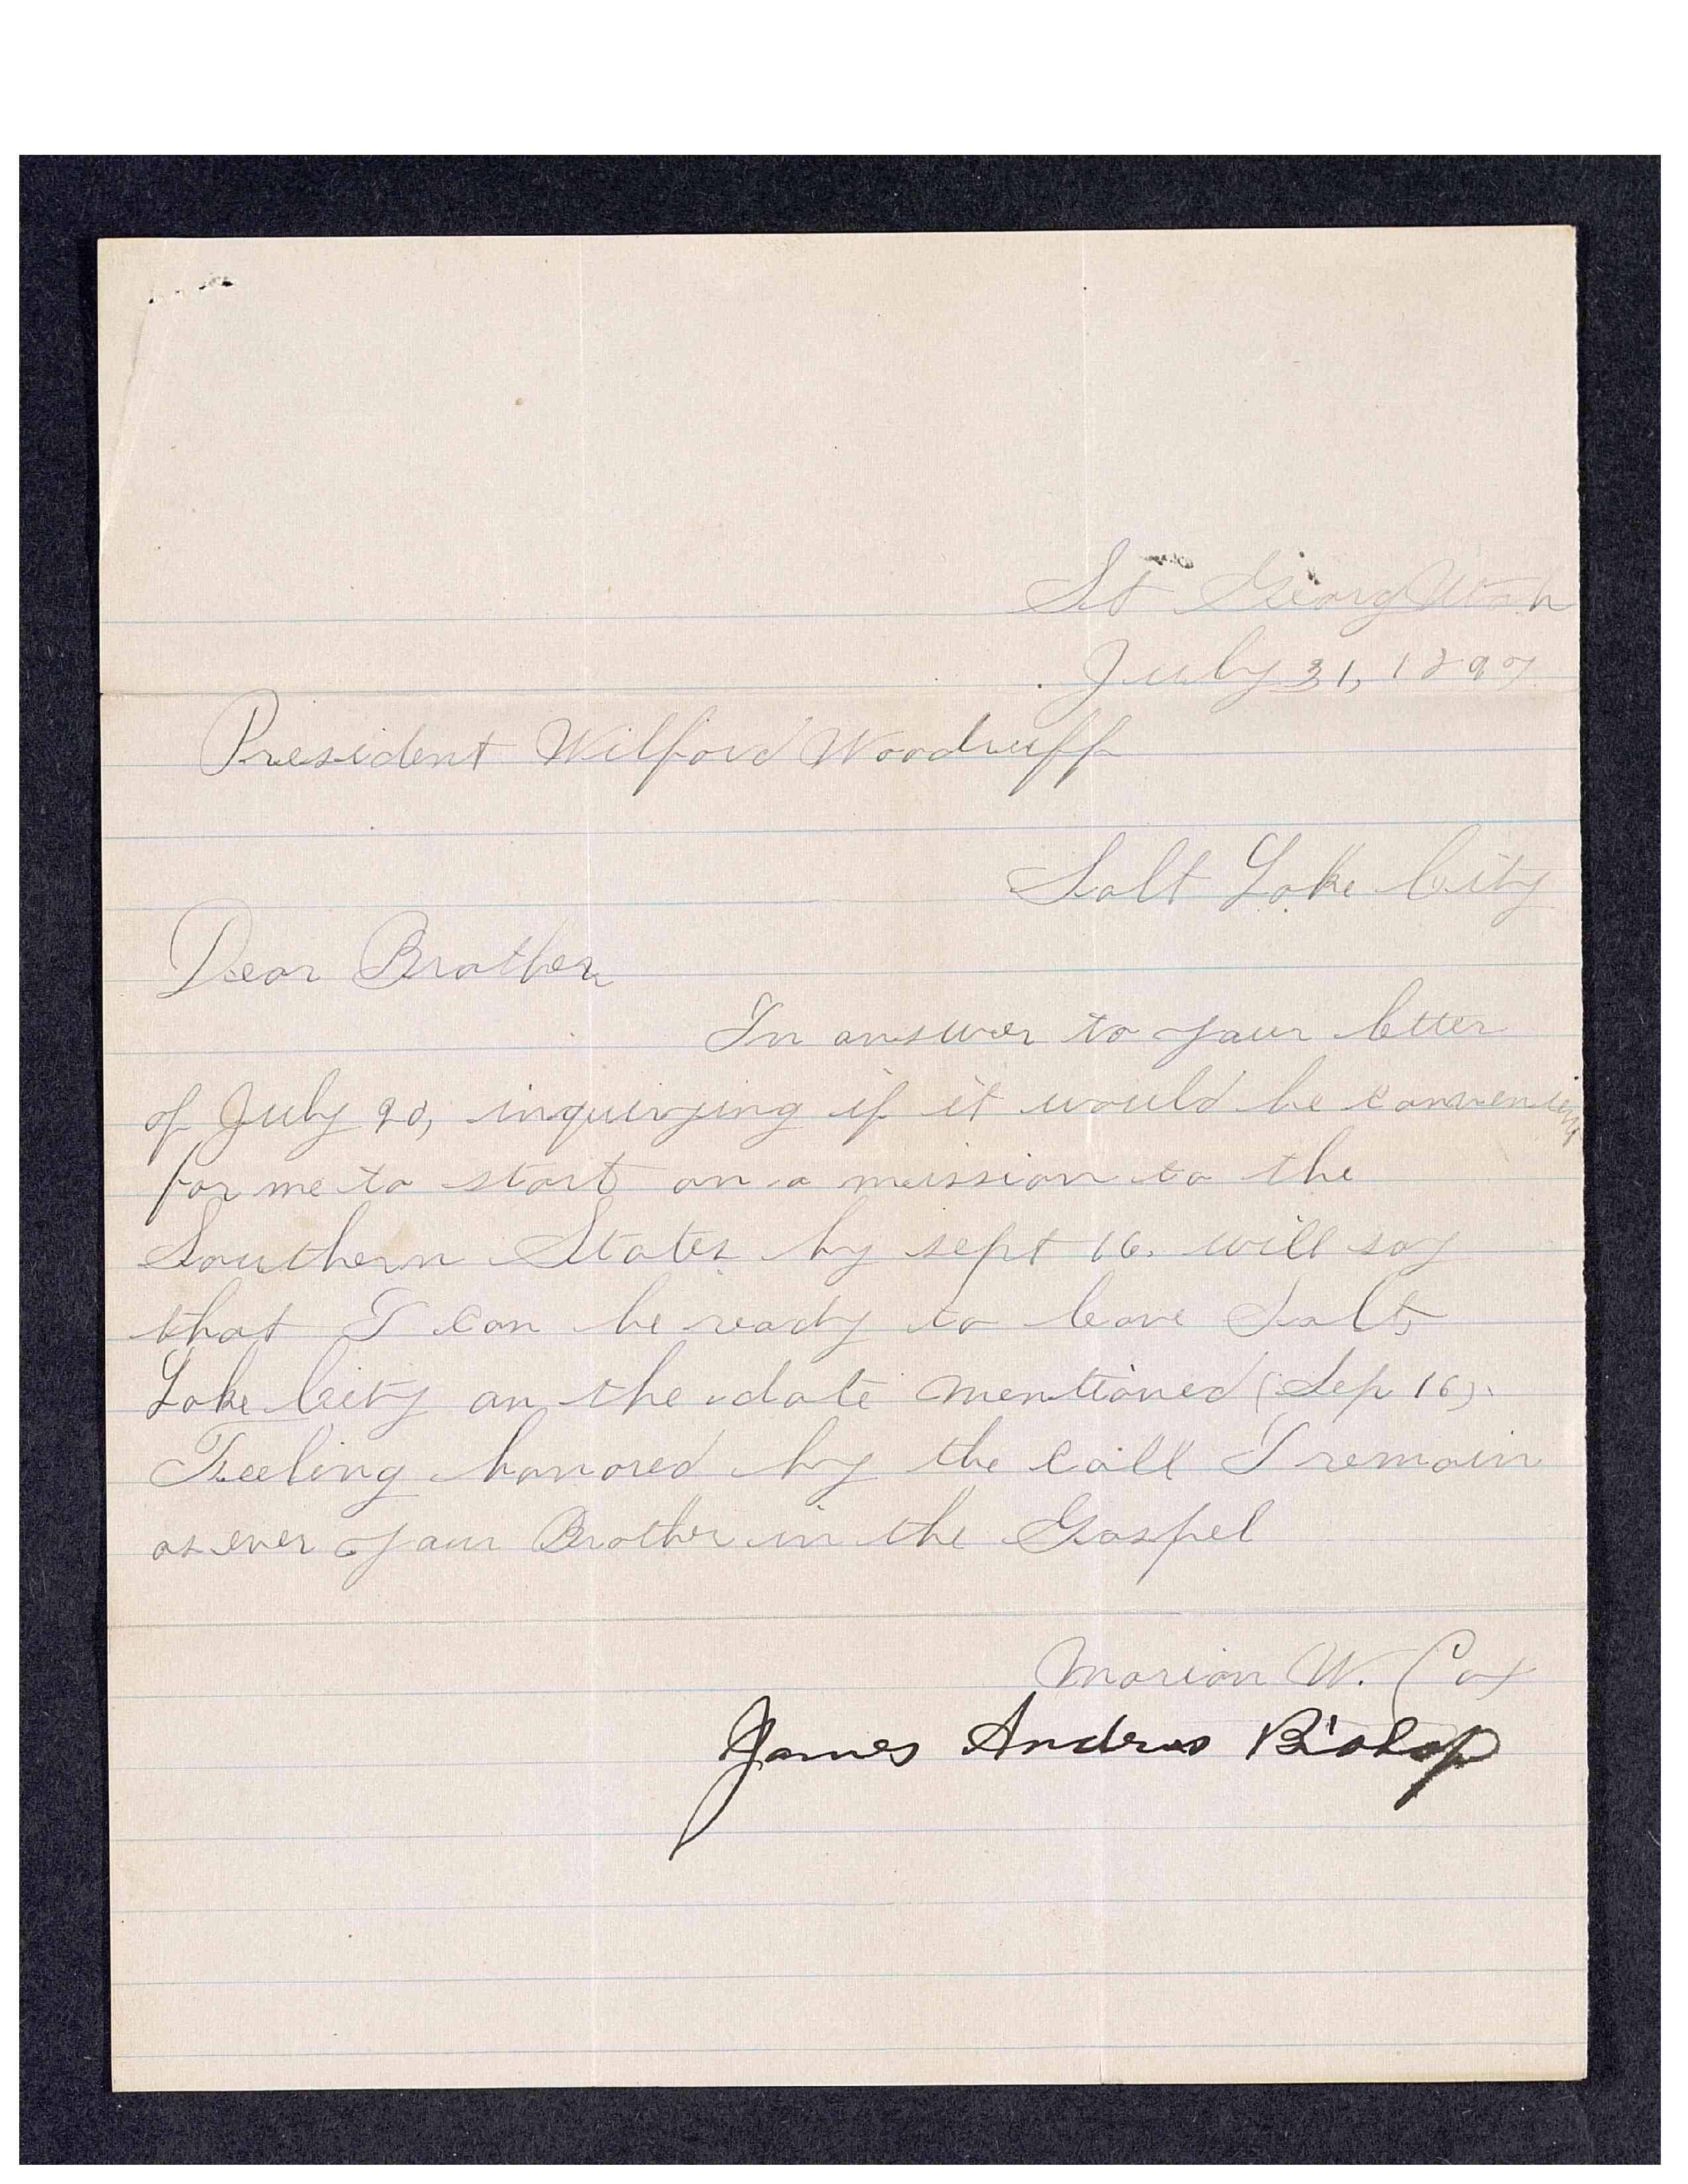 St Georg Utah
July 31, 1897
President Wilford Woodruff
Salt Lake City
Dear Brother
In answer to your letter
of July 20, inquirying if it would be convenient
for me to start on a mission to the
Southern States by sept 16. will say
that I can be ready to leave Salt
Lake City on the date mentioned (Sep 16).
Feeling honored by the call I remain
as ever your Brother in the Gospel
Marion W. Cox
James Andrus Bishop